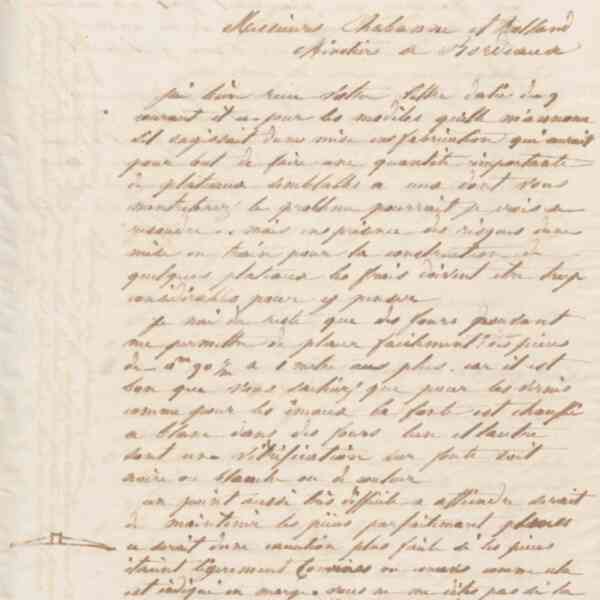 Messieurs Chabanne et Rolland
a Bordeaux
j'ai bien reçu votre lettre datée du 9
courant et a pour les modèles qu'elle m'annonce
s'il sagissait dune mise en fabrication qui aurait
pour but de faire une quantité importante
de plateaux semblables a ceux dont vous
le problème pourrait je crois se
resoudre mais en présence des risques dune
mise en train pour la construction de
quelques plateaux les frais doivent etre trop
considérables pour y penser
je nai du reste que des fours pouvant
me permettre de placer facilement des pièces
de 0m 90 a 1 metre au plus, car il est
bon que vous sachiez que pour les vernis
comme pour les émaux la fonte est chauffée
a blanc dans des fours l'un et l'autre
sont une vitrification sur fonte soit
noire ou blanche ou de couleur
un point aussi très difficile a atteindre serait
de maintenir les pièces parfaitement planes
ce serait dune exécution plus facile si les pièces
étaient légerement convexes ou comme cela
est indiqué en marge. vous ne me dites pas si la